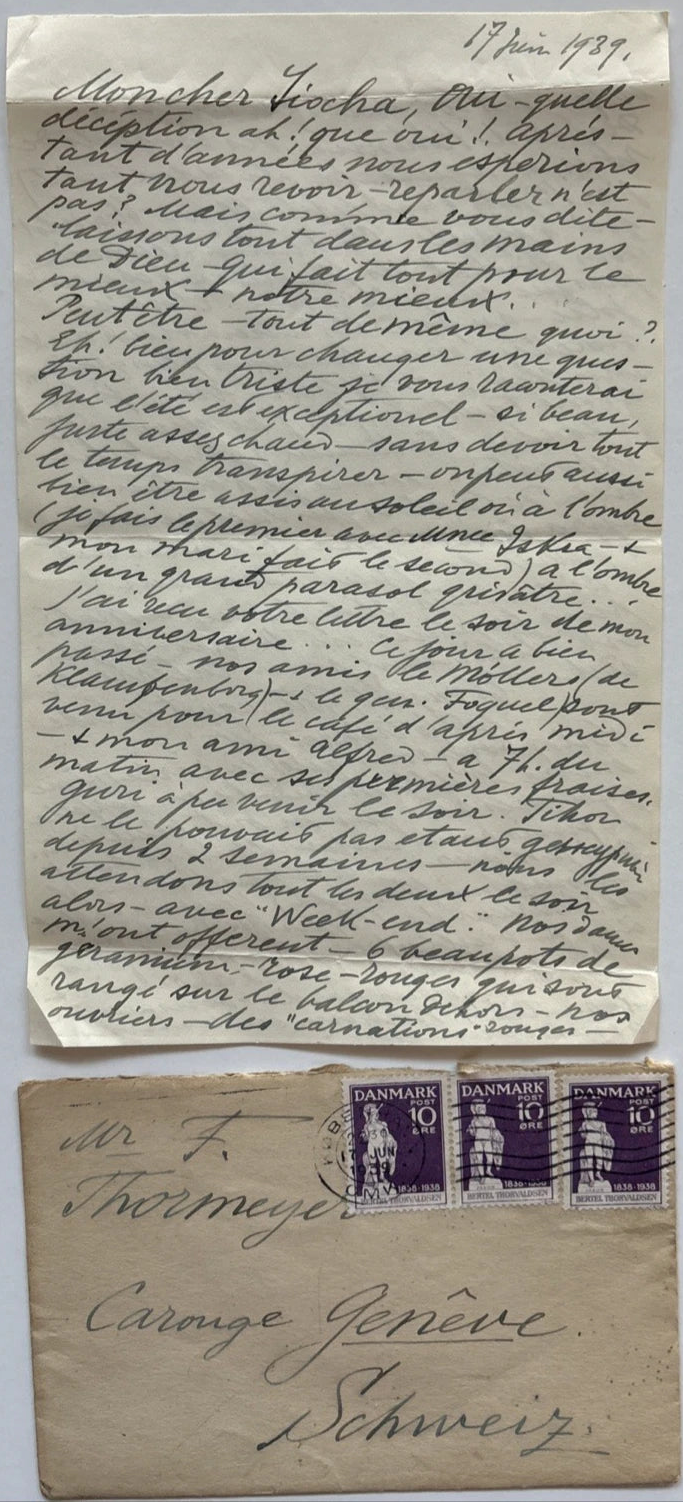 17 Juin 1939.
Mon cher Siocha, Oui - quelle
déception ah! que oui! Après-
tant d'années nous esperions
tant vous revoir - reparler n'est
pas? Mais comme vous dite-
laissons tout dans les mains
de Dieu - qui fait tout pour le
mieux - + notre mieux....
Peut être - tout de même quoi?
Eh! bien pour changer une ques-
tion bien triste je vous raconterai
que l'été est exceptionel - si beau,
juste assez chaud - sans devoir tout
le temps transpirer - on peut aussi
bien être assis au soleil où à l'ombre
(je fais le premier avec Mme Iskra - +
mon mari fait le second) a l'ombre
d'un grand parasol grisâtre...
J'ai reçu votre lettre le soir de mon
anniversaire.... Ce jour a bien
passé - nos amis le Möllers (de
Klampenborg) - + le gen. Foguel) sont
venu pour le café d'après midi
- + mon ami Alfred - a 7h. du
matin avec ses premières fraises.
Guri à pu venir le soir. Tihon
ne le pouvait pas etant
depuis 2 semaines - nous les
attendons tout les deux le soir
alors - avec "Week-end." Nos dames
m'ont offerent - 6 beau pots de
geranium - rose - rouges qui sont
rangé sur le balcon dehors - nos
ouvriers - des "carnations" rouges -
DANMARK
POST
10
ØRE
1838-1938
BERTEL THORVALDSEN
DANMARK
POST
10
ØRE
1838-1938
BERTEL THORVALDSEN
DANMARK
POST
10
ØRE
1838-1938
BERTEL THORVALDSEN
17 JUN
1939
OMV.
Mr F.
Thormeyer
Carouge Genêve.
Schweiz.